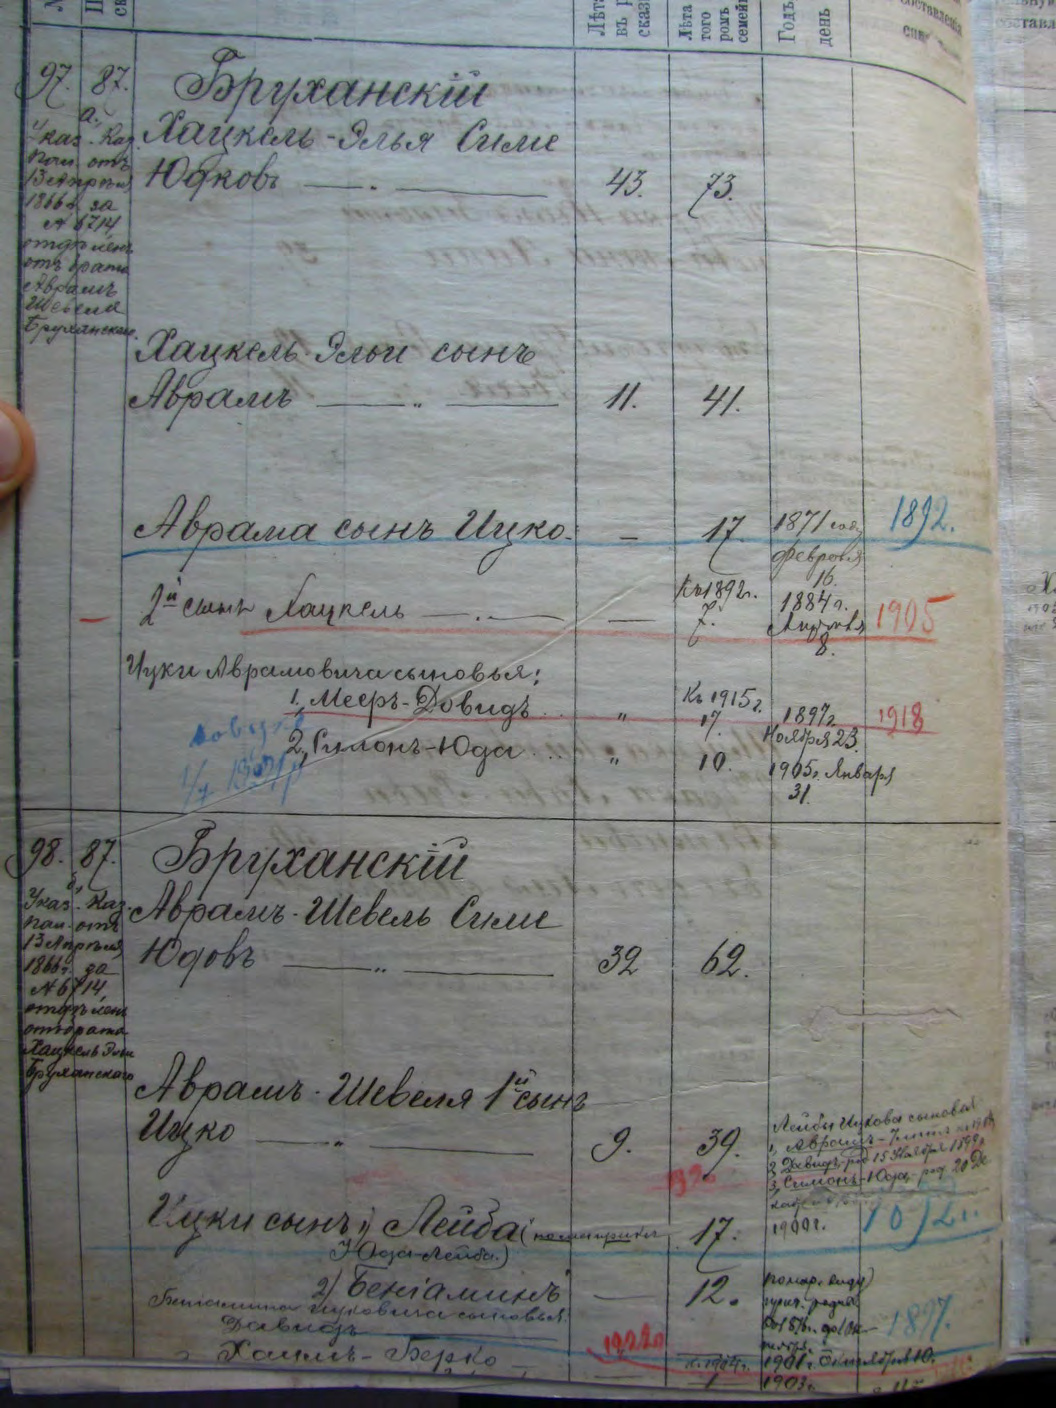 Лѣта
въ
сказ
Лѣта
того
ромъ
семей
Годъ
день
составленія
97. 87.
Бруханскій
а.
Указ. Каз.
пал. отъ
13 Апрѣля
1866 г. за
№ 6714
отдѣленъ
отъ брата
Аврамъ
Шевеля
Бруханскаго.
Хацкель-Элья Симе
Юдковъ 43. 73.
Хацкель-Эльи сынъ
Аврамъ 11. 41.
Аврама сынъ Ицко. — 17. 1871 году 1892.
февраля
16.
2й сынъ Хацкель — Къ 1892 г. 7. 1884 г. 1905
8.
Ицки Аврамовича сыновья:
1, Мееръ-Довидъ „ Къ 1915 г. 17. 1897 г. 1918
Ноября 23.
2, Симонъ-Юда „ 10. 1905 г. Января
31.
98. 87.
б.
Бруханскій
Указ. Каз.
пал. отъ
13 Апрѣля
1866 г. за
№ 6714
отдѣленъ
отъ брата
Хацкель Эли
Бруханскаго
Аврамъ-Шевель Симе
Юдовъ 32 62.
Аврамъ-Шевеля 1й сынъ
Ицко 9. 39.
Лейбы Ицкова сыновья
2, Давидъ-род 15 Ноября 1899
3, Симонъ-Юда-род. 20 Де
1900 г.
Ицки сынъ 1) Лейба ( 17.
Юда-Лейба.)
2) Беніаминъ — 12.
1897.
Беніамина Ицковича сыновья
Давидъ
1922
Хаимъ-Берко
1901 г. Сентября 10.
1903 г.